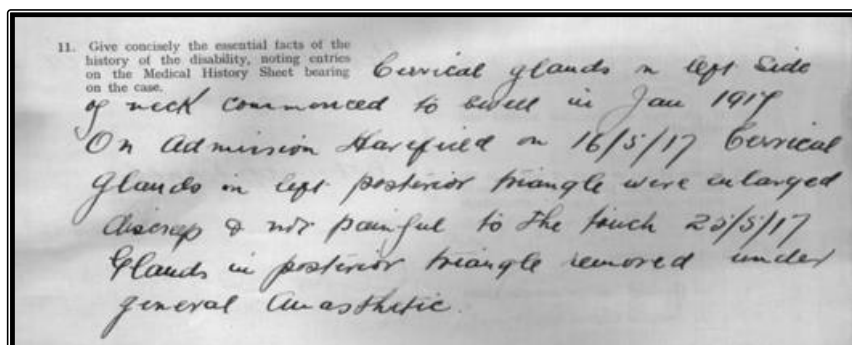 11. Give concisely the essential facts of the
history of the disability, noting entries
on the Medical History Sheet bearing
on the case.
Cervical glands on left side
of neck commenced to swell in Jan 1917
On Admission Harefield on 16/5/17 Cervical
Glands in left posterior triangle were enlarged
& not painful to the touch 25/5/17
Glands in posterior triangle removed under
general Anasthetic.